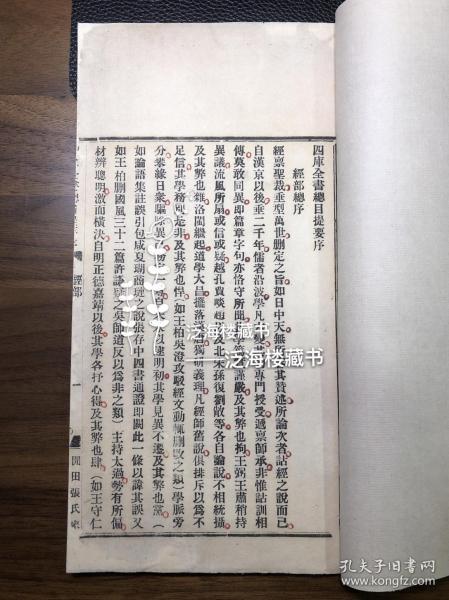 四庫全書總目提要序
經部總序
經禀聖裁垂型萬世删定之旨如日中天無所容其贊述所論次者詁經之說而已
自漢京以後垂二千年儒者沿波學凡六變其初專門授受遞禀師承非惟詁訓相
傳莫敢同異卽篇章字句亦恪守所聞其學篤實謹嚴及其弊也拘王弼王肅稍持
異議流風所扇或信或疑越孔賈啖趙以及北宋孫復劉敞等各自論說不相統攝
及其弊也雜洛閩繼起道學大昌擺落漢唐獨研義理凡經師舊說俱排斥以爲不
足信其學務別是非及其弊也悍(如王柏吳澄攻駁經文動輒删改之類)學脈旁
分攀緣日衆驅除異己務定一尊自宋末以逮明初其學見異不遷及其弊也黨(
如論語集註誤引包咸夏瑚商璉之說張存中四書通證卽闕此一條以諱其誤又
如王柏删國風三十二篇許謙疑之吳師道反以爲非之類)主持太過勢有所偏
材辨聰明激而橫決自明正德嘉靖以後其學各抒心得及其弊也肆(如王守仁
經部
一
開田張氏
泛海楼藏书
泛海楼藏书
孔夫子旧书网